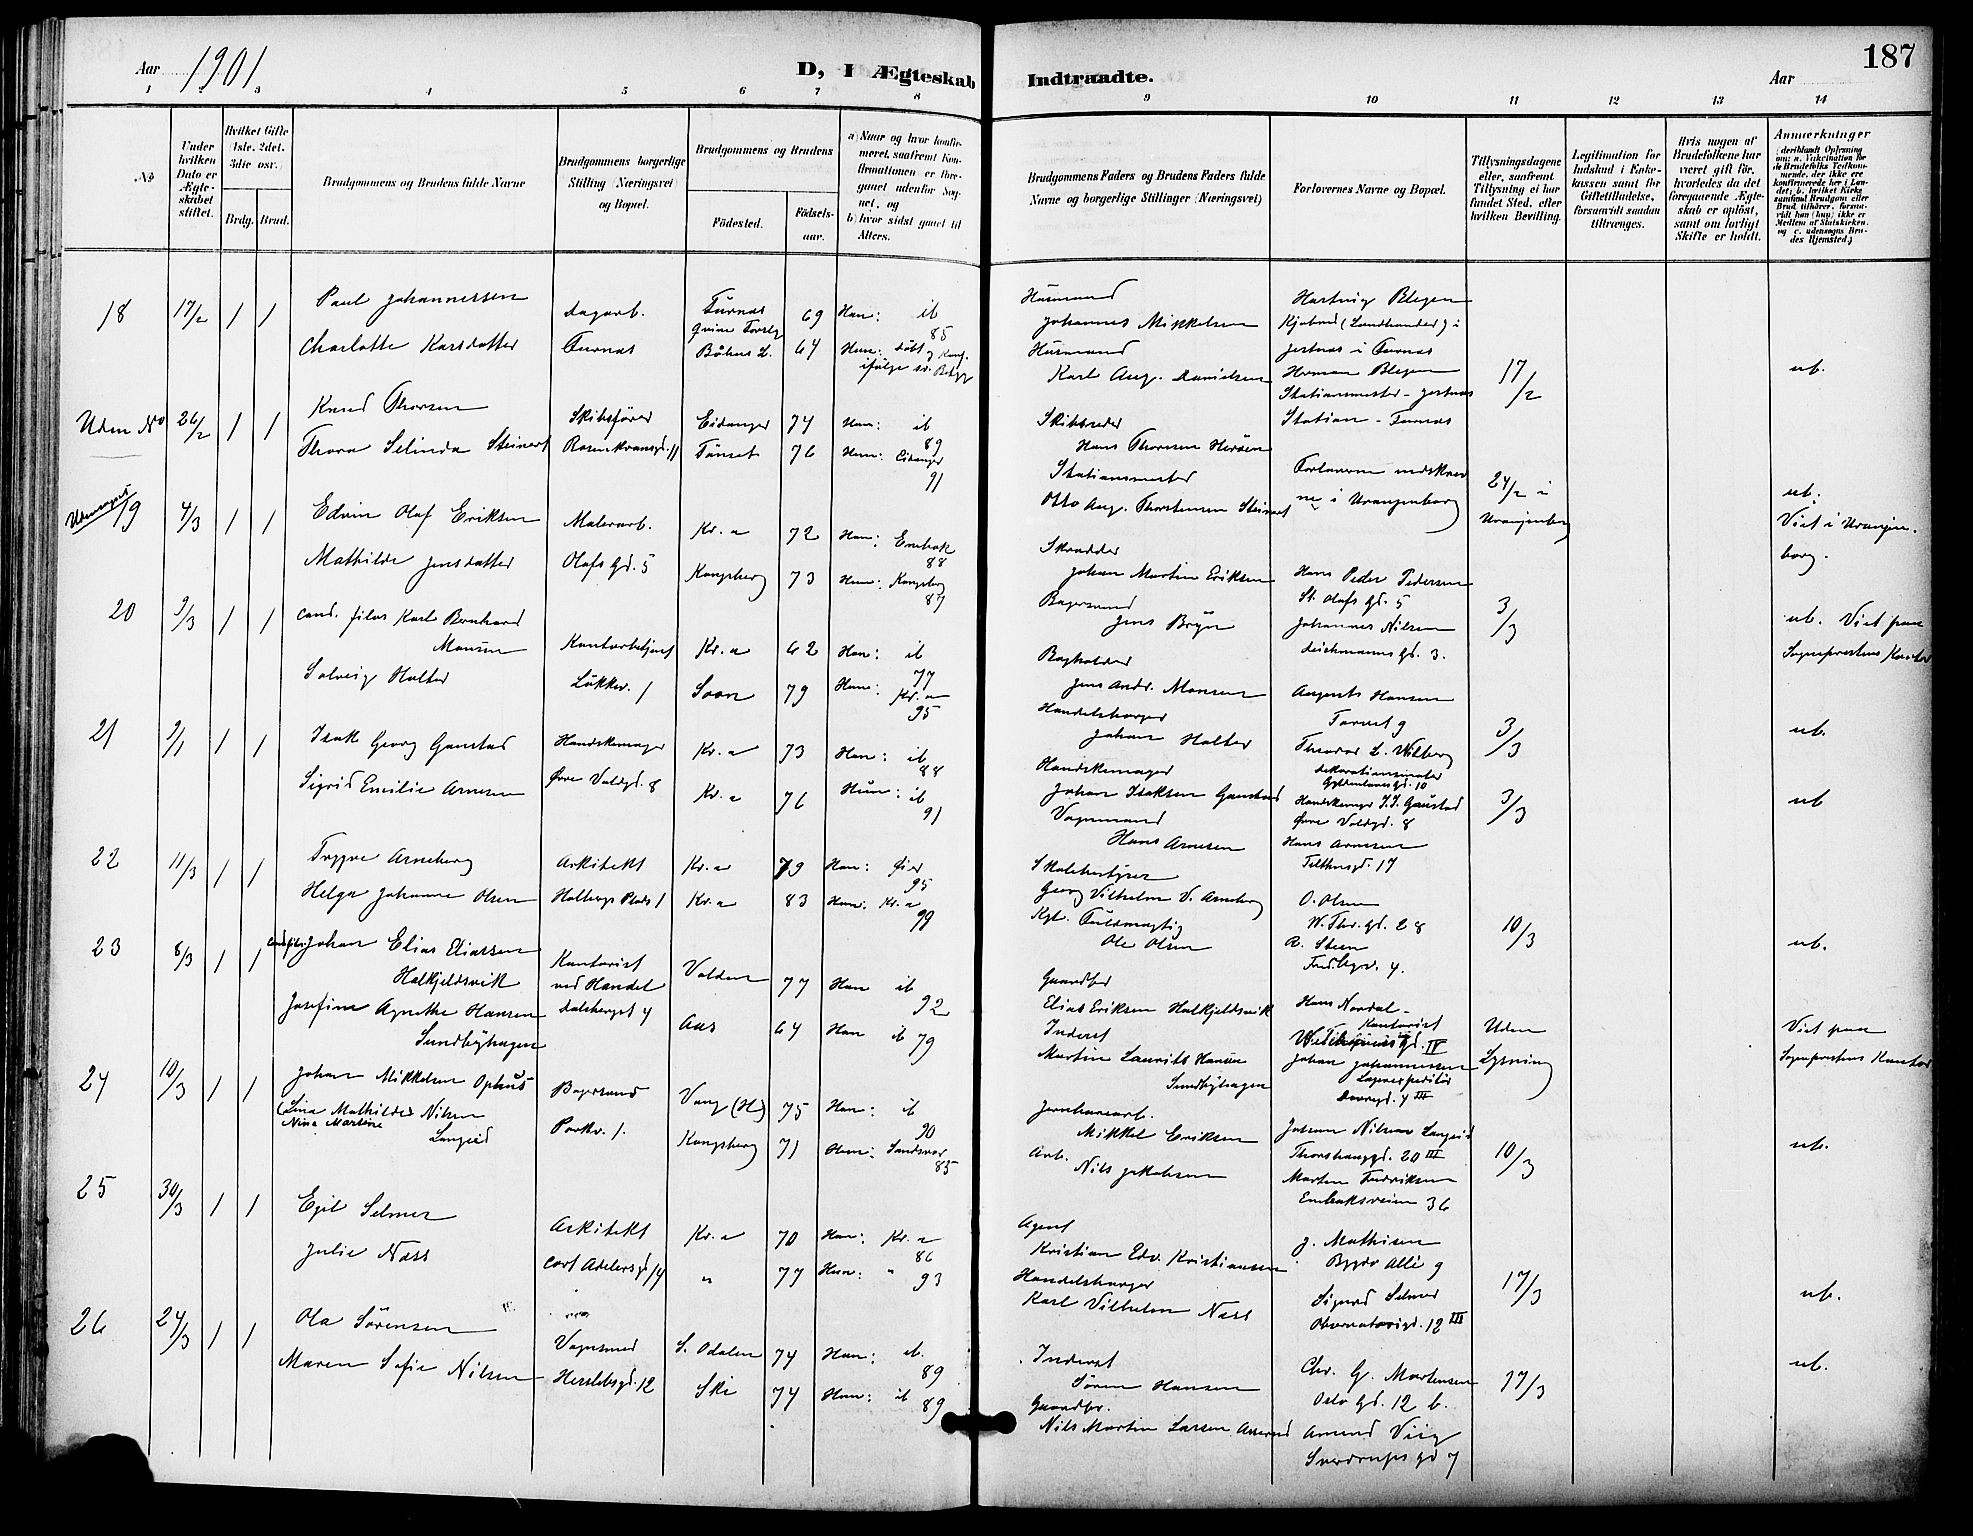 Aar 1901
D, I Ægteskab Indtraadte.
Aar
187
1 2 3 4 5 6 7 8 9 10 11 12 13 14
No
Under hvilken Dato er Ægteskabet stiftet.
Hvilket Gifte (1ste, 2det, 3die osv.)
Brdg. Brud.
Brudgommens og Brudens fulde Navne
Brudgommens borgerlige Stilling (Næringsvei) og Bopæl.
Brudgommens og Brudens
Fødested.
Fødsels-aar.
a) Naar og hvor konfirmeret, saafremt Konfirmationen er foregaaet udenfor Sognet, og
b) hvor sidst gaaet til Alters.
Brudgommens Faders og Brudens Faders fulde Navne og borgerlige Stillinger (Næringsvei)
Forlovernes Navne og Bopæl.
Tillysningsdagene eller, saafremt Tillysning ei har fundet Sted, efter hvilken Bevilling.
Legitimation for Indskud i Enkekassen samt for Giftetilladelse, forsaavidt saadan tiltrænges.
Hvis nogen af Brudefolkene har været gift før, hvorledes da det foregaaende Ægteskab er opløst, samt om lovligt Skifte er holdt.
Anmærkninger
18 17/2 1 1
Paul Johannessen
Charlotte Karsdatter
dagarb.
Furnæs
Furnæs 69 Han: ib 85
Bohus L. 64 Hun: døbt og konf. ifølge sv.
Husmand
Johannes Mikkelsen
Husmand
Karl Aug. Danielsen
Hartvig Blegen
Kjøbmd (Landhandler) i
Jesnæs i Furnæs
Herman Blegen
Stationsmester - Jesnæs
Station - Furnæs
17/2
ub.
Uden No 26/2 1 1
Knud Thorsen
Thora Selinda Steinert
Skibsfører
Rosenkransgd. 11
Eidanger 74 Han: ib 89
Tønset 76 Hun: Eidanger 91
Skibsreder
Hans Thorsen Herøen
Stationsmester
Otto Aug. Thorstensen Steinert
Forloverne indskrev
ne i Uranienborg
24/2 i
Uranienborg
ub.
Viet i Uranien-
borg.
19 4/3 1 1
Edvin Olaf Eriksen
Mathilde Jensdatter
Malerarb.
Olafs Gd. 5
Kr.a 72 Han: Enebak 88
Kongsberg 73 Hun: Kongsberg 87
Skrædder
Johan Martin Eriksen
Bagersvend
Jens Bryn
Hans Peder Pedersen
St. Olafs Gd. 5
Johannes Nilsen
Deichmanns Gd. 3.
3/3
ub. Viet paa
Sogneprestens Kontor
20 9/3 1 1
cand. filos Karl Bernhard
Monsen
Solveig Holter
Kontorbetjent
Løkkev. 1
Kr.a 62 Han: ib 77
Soon 79 Hun: Kr.a 95
Bogholder
Jens Andr. Monsen
Handelsborger
Johan Holter
August Hansen
Torvet 9
Theodor L. Wilberg
dekorationsmaler
Gyldenløvesgd. 10
3/3
ub.
21 1 1
Isak Georg Gaustad
Sigrid Emilie Arnesen
Handskemager
Øvre Voldgd. 8
Kr.a 73 Han: ib 88
Kr.a 76 Hun: ib 91
Handskemager
Johan Isaksen Gaustad
Vognmand
Hans Arnesen
Handskemgr J.I. Gaustad
Øvre Voldgd. 8
Hans Arnesen
Telthusgd. 17
3/3
ub
22 11/3 1 1
Trygve Arneberg
Helga Johanne Olsen
Arkitekt
Holbergs Plads 1
Kr.a 79 Han: Øier 95
Kr.a 83 Hun: Kr.a 99
Skolebestyrer
Georg Vilhelm V. Arneberg
Kgl. Fuldmægtig
Ole Olsen
O. Olsen
W. Thr. Gd. 28
R. Steen
4.
10/3
ub.
23 8/3 1 1
Johan Elias Eliassen
Halkjeldsvik
Josefine Agnethe Hansen
Sundbyhagen
Kontorist
ved Handel
Dalsbergst 4
Volden 77 Han ib 92
Aas 64 Hun ib 79
Gaardbr
Elias Eriksen Halkjeldsvik
Inderst
Martin Laurits Hansen
Sundbyhagen
Hans Nordal -
Kontorist
IV
Johan Johannessen
Lagerexpeditør
4 III
Uden
Lysning
Viet paa
Sogneprestens Kontor
24 10/3 1 1
Johan Mikkelsen Ophus
(Lina Mathilde) Nilsen
Nina Martine
Langeid
Bagersvend
Parkv. 1.
Vang (H.) 75 Han: ib 90
Kongsberg 71 Hun: Sandsvær 85
Jernbanearb.
Mikkel Eriksen
Arb.
Nils Jakobsen
Johan Nilsen Langeid
Thorshauggd. 20 III
Martin Fredriksen
Enebaksveien 36
10/3
ub.
25 30/3 1 1
Egil Selmer
Julie Næss
Arkitekt
Cort Adelersgd. 14
Kr.a 70 Han: Kr.a 86
" 77 Hun: " 93
Agent
Kristian Edv. Kristiansen
Handelsborger
Karl Vilhelm Næss
J. Mathisen
Bygdø Allé 9
Sigurd Selmer
Observatorigd. 12 III
17/3
ub.
26 24/3 1 1
Ola Sørensen
Maren Sofie Nilsen
Vognmd
Herslebsgd. 12
S. Odalen 74 Han: ib. 89
Ski 74 Hun: ib 89
Inderst
Søren Hansen
Gaardbr.
Nils Martin Larsen
Chr. G. Mortensen
Oslo Gd. 12 b.
Amund Viig
Sverdrups gd 7
17/3
ub.